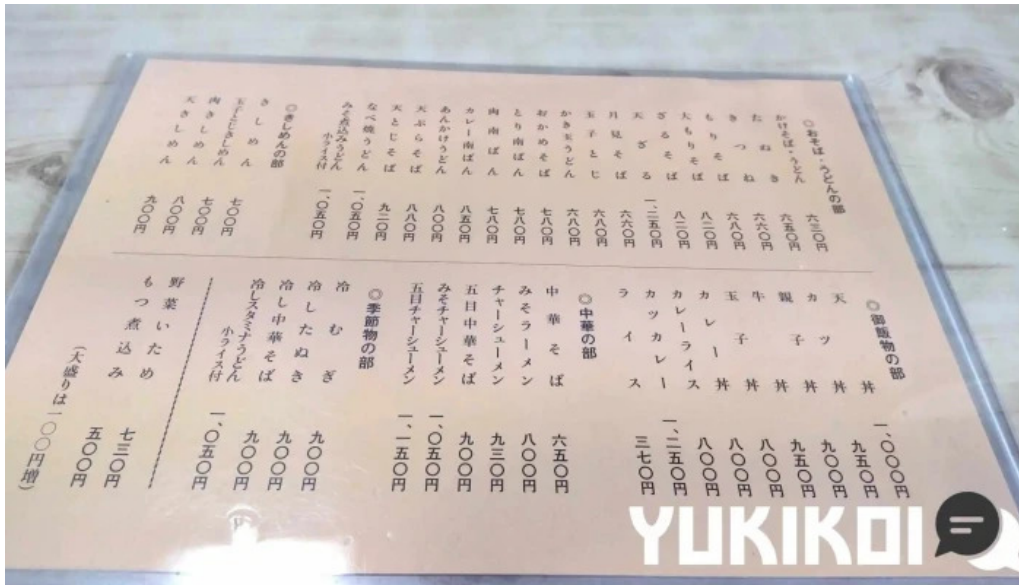 ◎おそば・うどんの部
かけそば・うどん 六三〇円
たぬき 六五〇円
きつね 六六〇円
もりそば 六八〇円
大もりそば 八二〇円
ざるそば 八二〇円
天ざる 一、二五〇円
月見そば 六六〇円
玉子とじ 六八〇円
かき玉うどん 六八〇円
おかめそば 七八〇円
とり南ばん 七八〇円
肉南ばん 七八〇円
カレー南ばん 八五〇円
あんかけうどん 八〇〇円
天ぷらそば 八八〇円
天とじそば 九二〇円
なべ焼うどん 一、〇五〇円
みそ煮込みうどん 一、〇五〇円
小ライス付
◎きしめんの部
きしめん 七〇〇円
玉子とじきしめん 七〇〇円
肉きしめん 八〇〇円
天きしめん 九〇〇円
◎御飯物の部
天丼 一、〇〇〇円
カツ丼 九五〇円
親子丼 九〇〇円
牛丼 九五〇円
玉子丼 八〇〇円
カレー丼 八〇〇円
カレーライス 八〇〇円
カツカレー 一、二五〇円
ライス 三七〇円
◎中華の部
中華そば 六五〇円
みそラーメン 八〇〇円
チャーシューメン 九三〇円
五目中華そば 九〇〇円
みそチャーシューメン 一、〇五〇円
五目チャーシューメン 一、一五〇円
◎季節物の部
冷むぎ 九〇〇円
冷したぬき 九〇〇円
冷し中華そば 九〇〇円
冷しスタミナうどん 一、〇五〇円
小ライス付
野菜いため 七三〇円
もつ煮込み 五〇〇円
（大盛りは一〇〇円増）
YUKIKOI